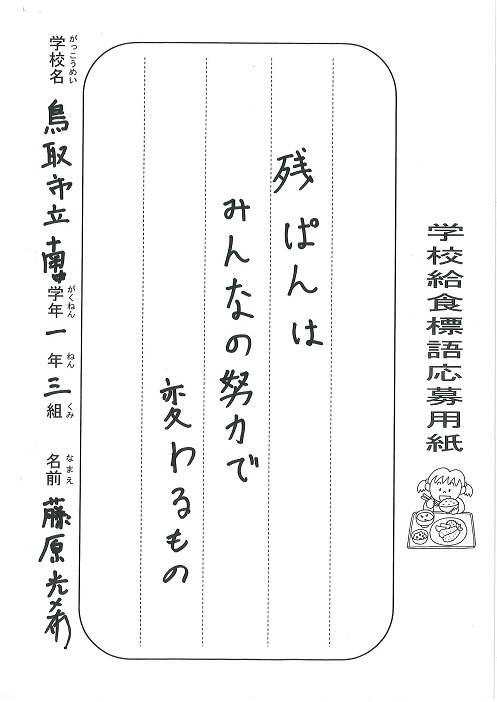 学校給食標語応募用紙
残ぱんは
みんなの努力で
変わるもの
がっこうめい がくねん ねん くみ なまえ
学校名 鳥取市立南中 学年 一年 三組 名前 藤原光希